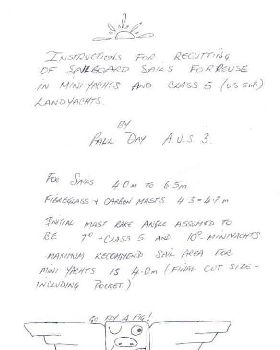 INSTRUCTIONS FOR RECUTTING
OF SAILBOARD SAILS FOR REUSE
IN MINI YACHTS AND CLASS 5 (
LANDYACHTS.
BY
PAUL DAY A.U.S 3.
FOR SAILS 4.0M TO 6.5M
FIBREGLASS & CARBON MASTS 4.3-4.7M
INITIAL MAST RAKE ANGLE ASSUMED TO
BE 7° - CLASS 5 AND 10° MINIYACHTS
MAXIMUM RECOMMEND SAIL AREA FOR
MINI YACHTS IS 4.0M (FINAL CUT SIZE -
INCLUDING POCKET.)
GO FLY A PIG!